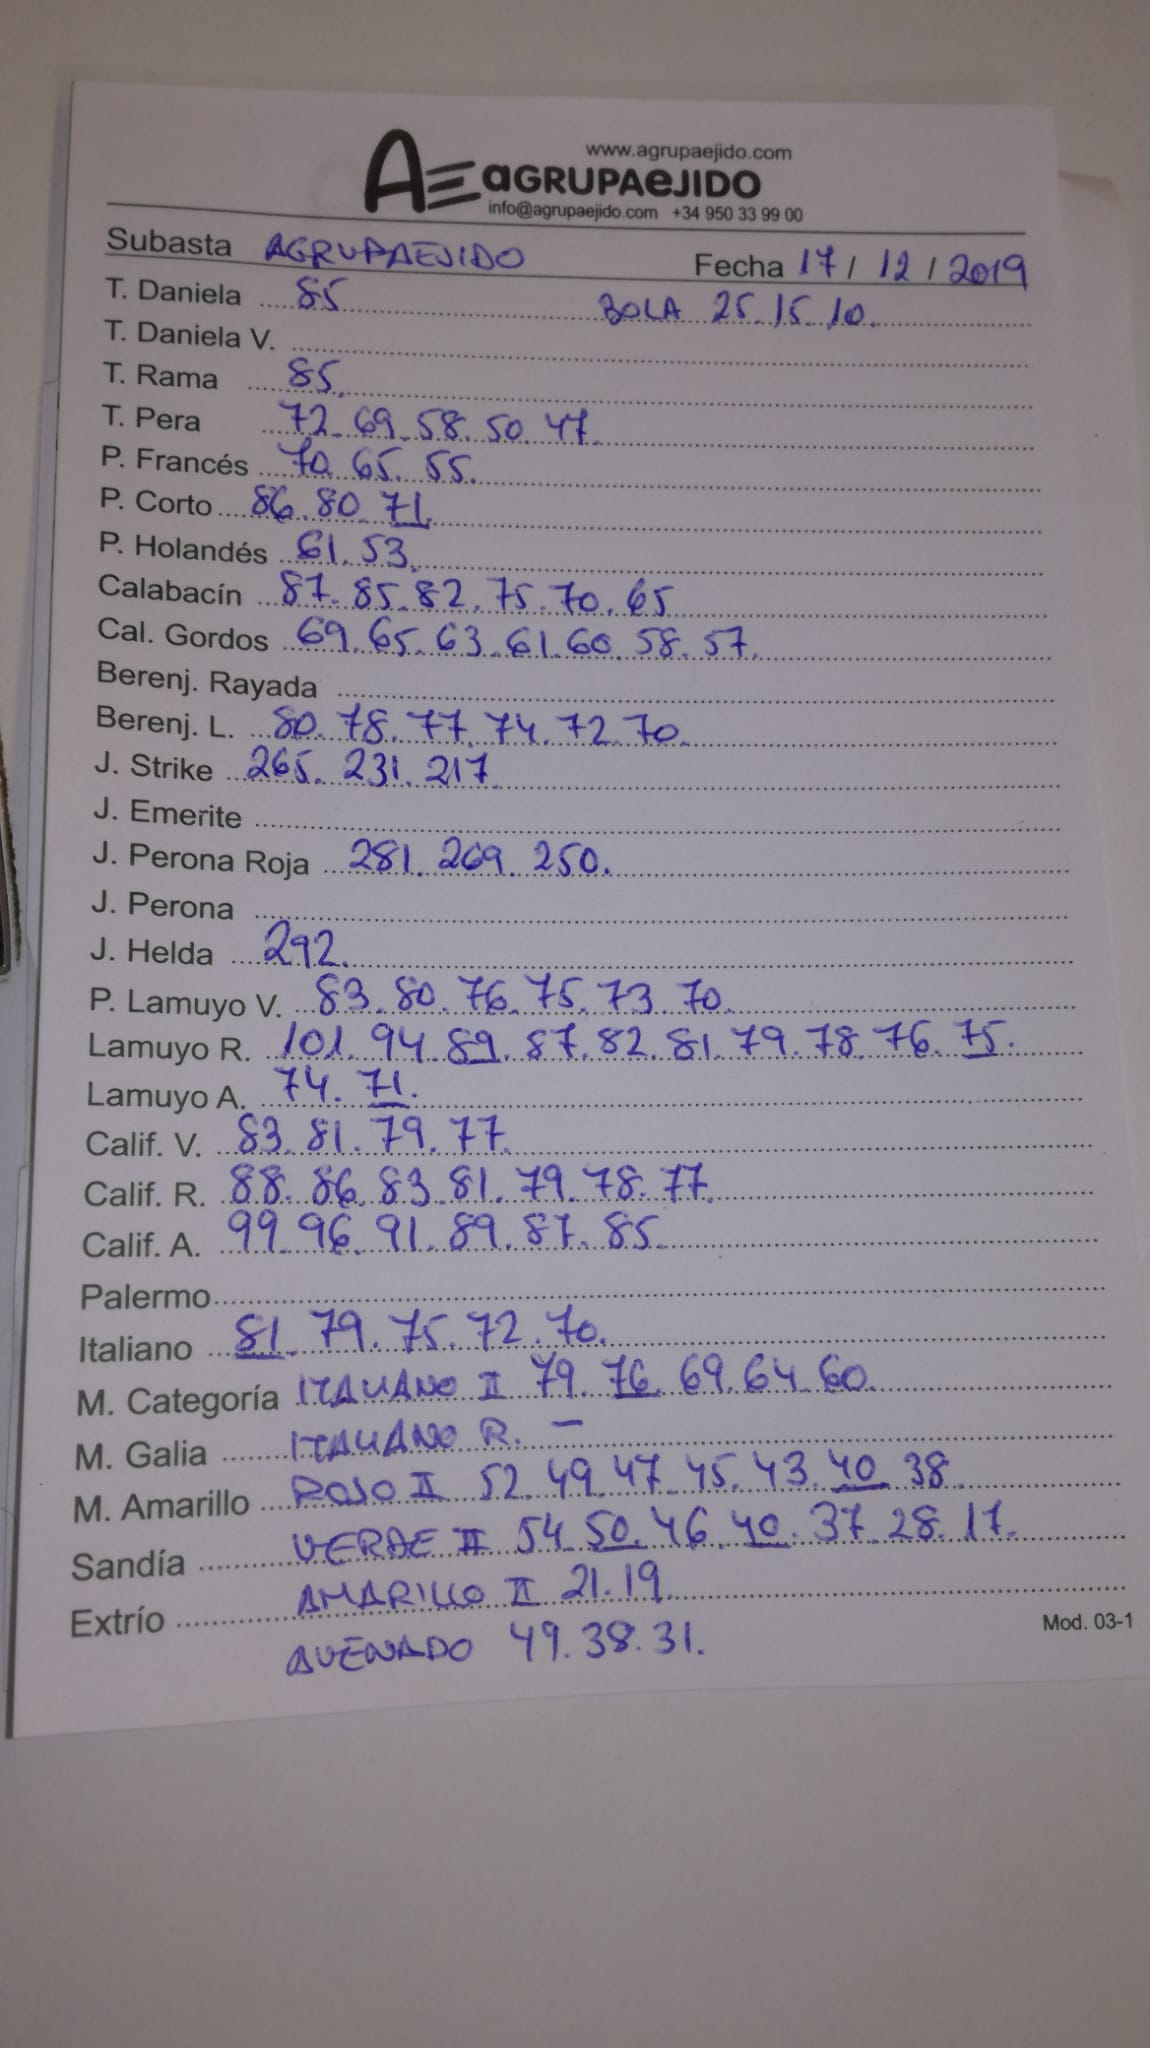 www.agrupaejido.com
AE aGRUPAeJIDO
info@agrupaejido.com +34 950 33 99 00
Subasta AGRUPAEJIDO Fecha 17 / 12 / 2019
T. Daniela 85 BOLA 25. 15. 10.
T. Daniela V.
T. Rama 85.
T. Pera 72. 69. 58. 50. 47.
P. Francés 70. 65. 55.
P. Corto 86. 80. 71.
P. Holandés 61. 53.
Calabacín 87. 85. 82. 75. 70. 65
Cal. Gordos 69. 65. 63. 61. 60. 58. 57.
Berenj. Rayada
Berenj. L. 80. 78. 77. 74. 72. 70.
J. Strike 265. 231. 217.
J. Emerite
J. Perona Roja 281. 269. 250.
J. Perona
J. Helda 292.
P. Lamuyo V. 83. 80. 76. 75. 73. 70.
Lamuyo R. 101. 94. 89. 87. 82. 81. 79. 78. 76. 75.
Lamuyo A. 74. 71.
Calif. V. 83. 81. 79. 77.
Calif. R. 88. 86. 83. 81. 79. 78. 77.
Calif. A. 99. 96. 91. 89. 87. 85.
Palermo
Italiano 81. 79. 75. 72. 70.
M. Categoría ITALIANO II 79. 76. 69. 64. 60.
M. Galia ITALIANO R. -
M. Amarillo ROJO II 52. 49. 47. 45. 43. 40. 38.
Sandía VERDE II 54. 50. 46. 40. 37. 28. 17.
Extrío AMARILLO II 21. 19.
AVENADO 49. 38. 31.
Mod. 03-1